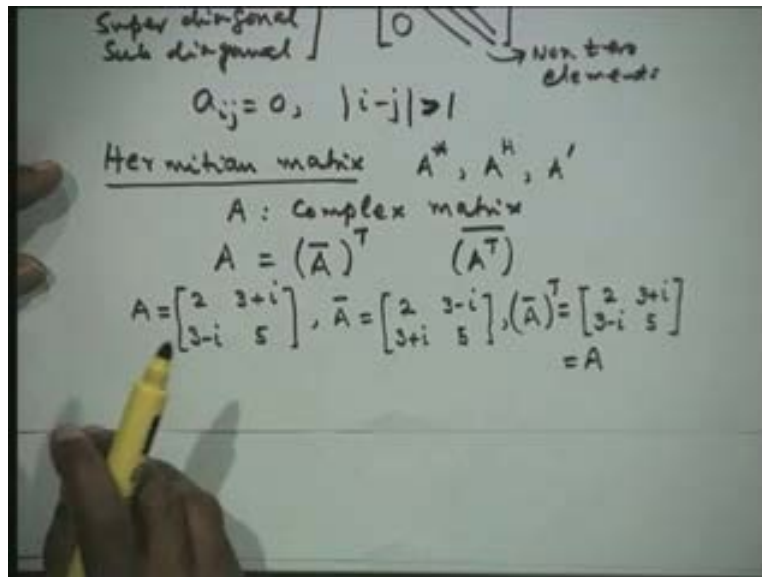 Super diagonal
Sub diagonal ] [0 ] → Non zero elements
a_{ij} = 0, |i-j| > 1
Hermitian matrix A^*, A^H, A'
A : Complex matrix
A = (Ā)^T \overline{(A^T)}
A = [2 3+i; 3-i 5], Ā = [2 3-i; 3+i 5], (Ā)^T = [2 3+i; 3-i 5]
= A